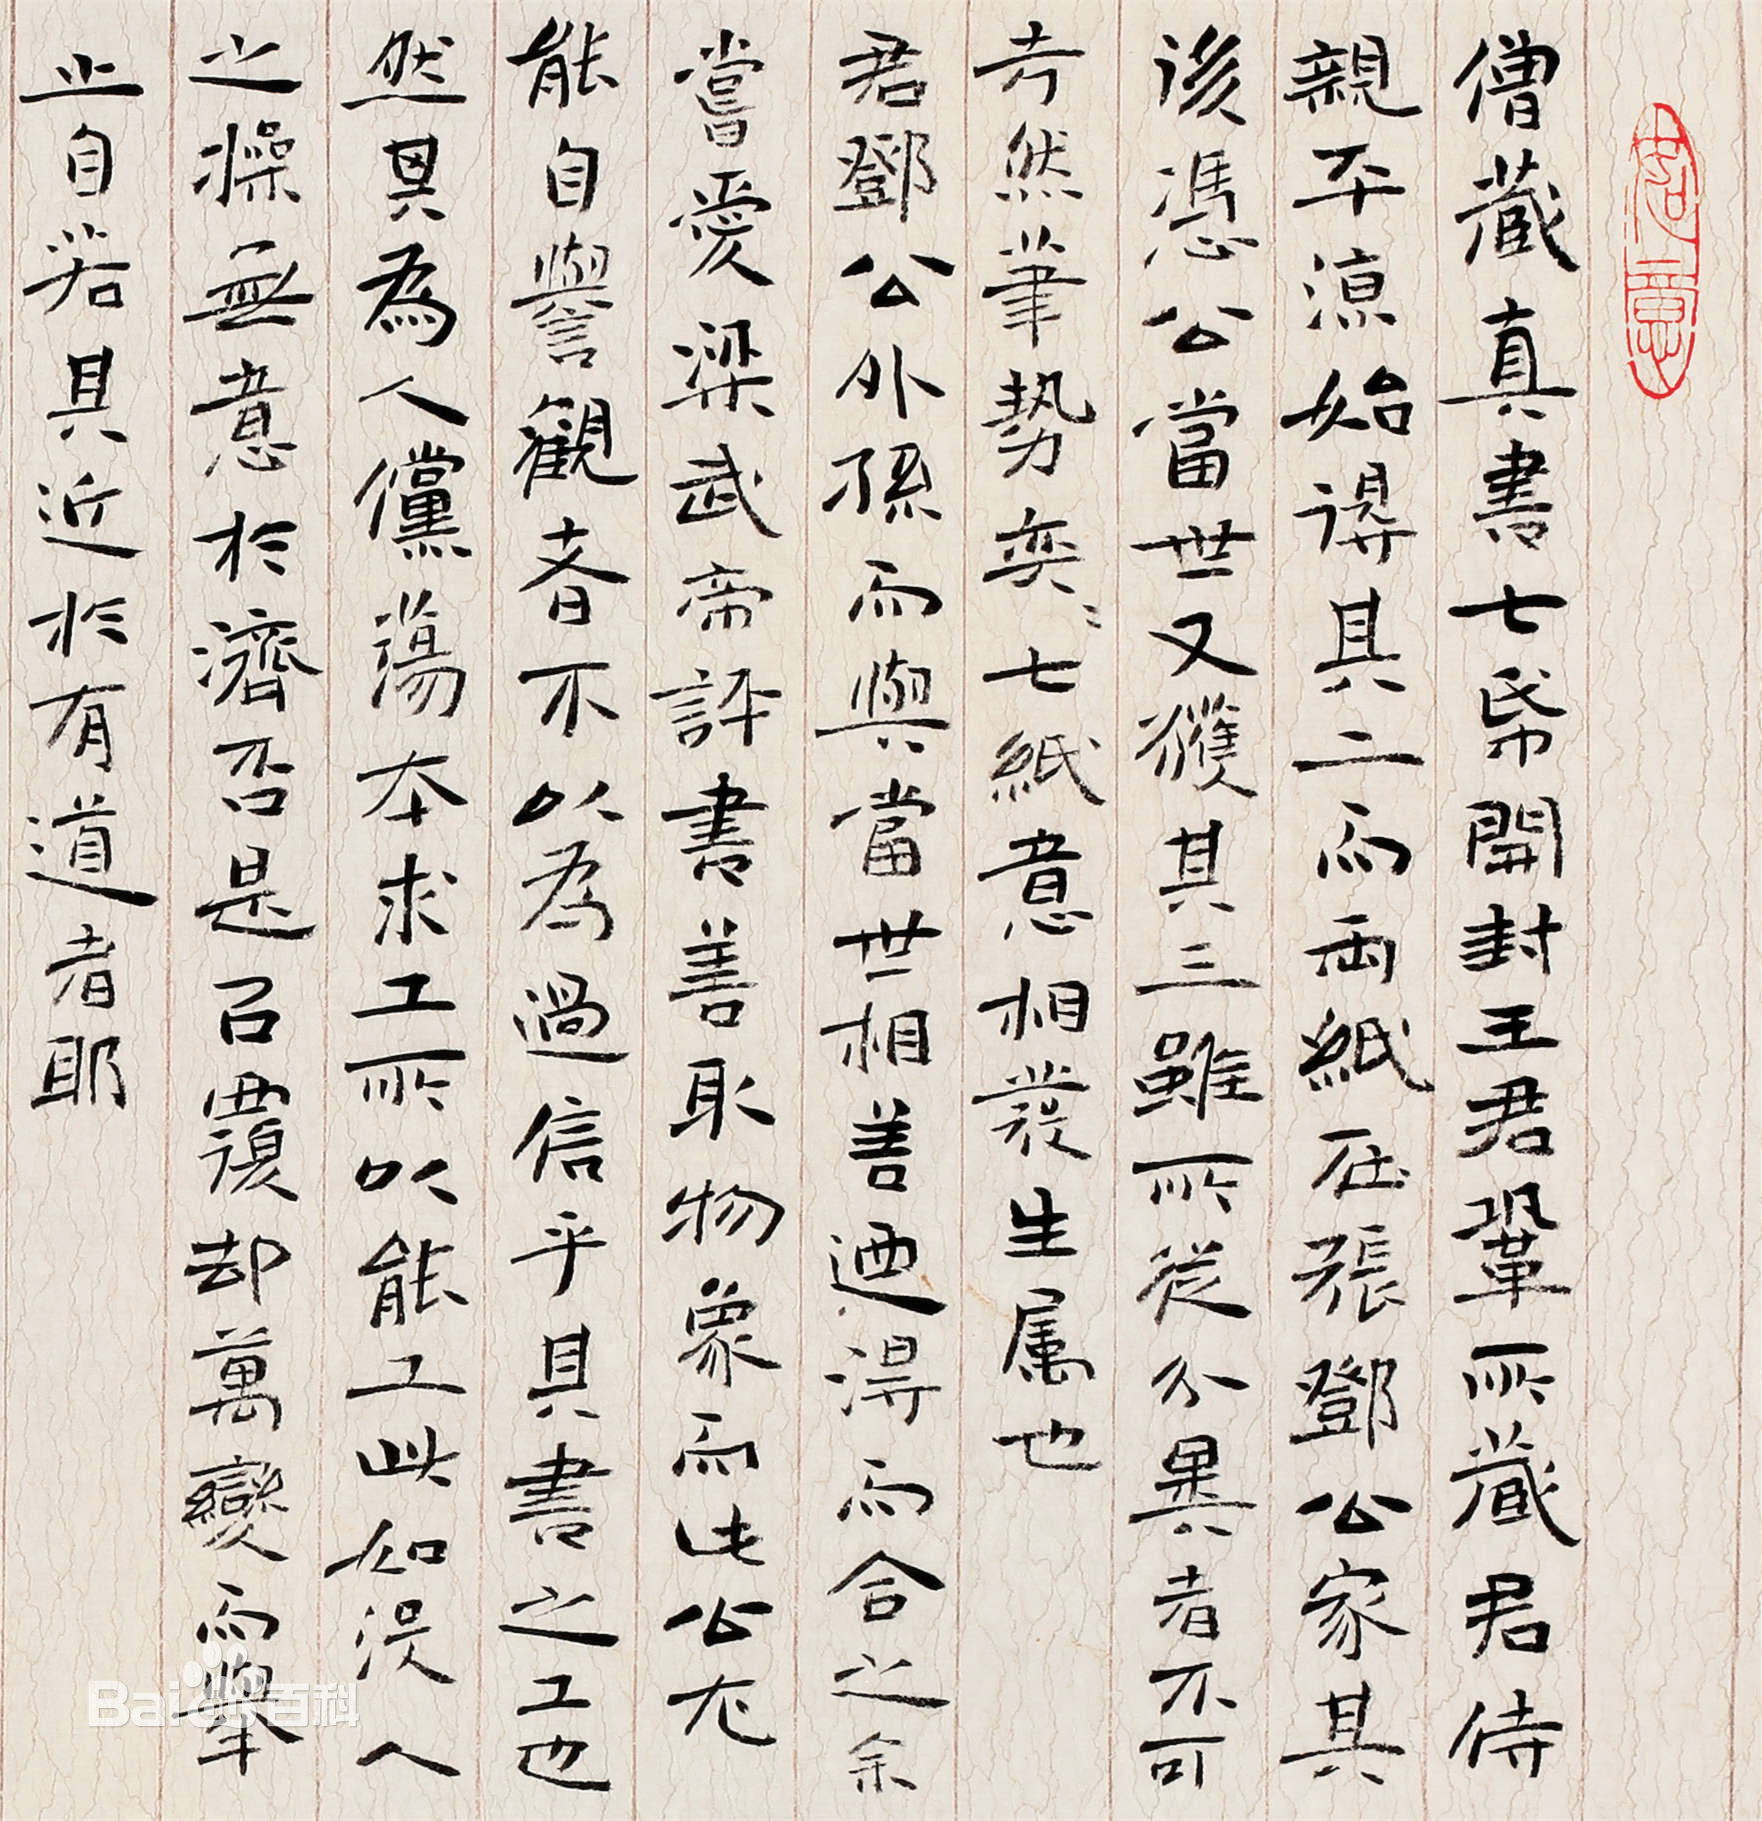 僧藏真書七帋開封王君鞏所藏君侍
親平涼始得其二而兩紙在張鄧公家其
後馮公當世又獲其三雖所從分異者不可
考然筆勢奕〻七紙意相發生属也
君鄧公外孫而與當世相善迺得而合之余
嘗愛梁武帝評書善取物象而此公尤
能自譽觀者不以為過信乎其書之工也
然其為人儻蕩本求工所以能工此如沒人
之操無意於濟否是㠯覆却萬變而舉
止自若其近於有道者耶
Baidu百科